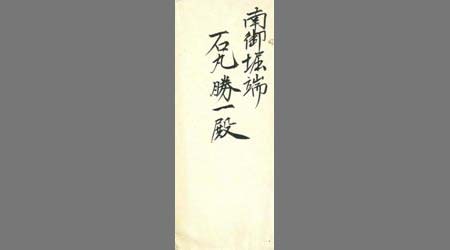 南御堀端
石丸勝一殿